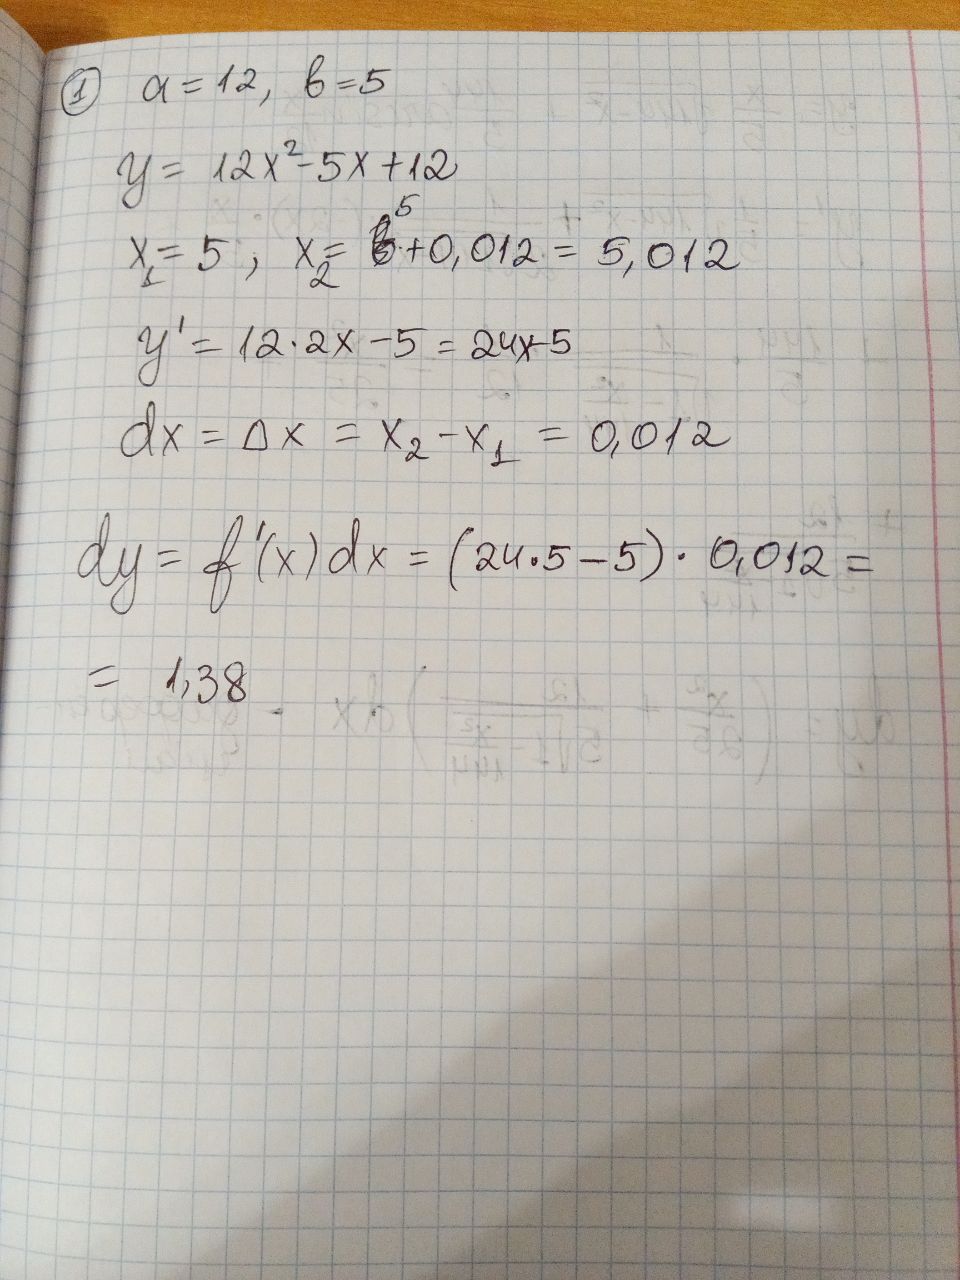 ① a = 12, b = 5
y = 12x² - 5x + 12
x₁ = 5 ; x₂ = 5 + 0,012 = 5,012
y' = 12·2x - 5 = 24x-5
dx = Δx = x₂ - x₁ = 0,012
dy = f'(x)dx = (24·5 - 5) · 0,012 =
= 1,38